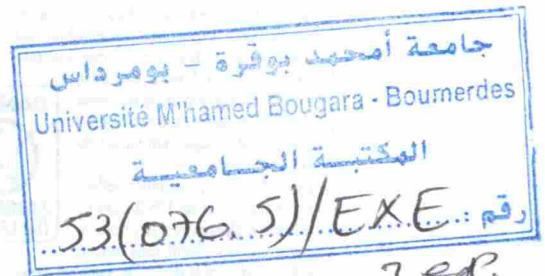 جامعة أمحمد بوقرة - بومرداس
Université M'hamed Bougara - Boumerdes
المكتبة الجامعية
رقم : 53(076.5)/EXE